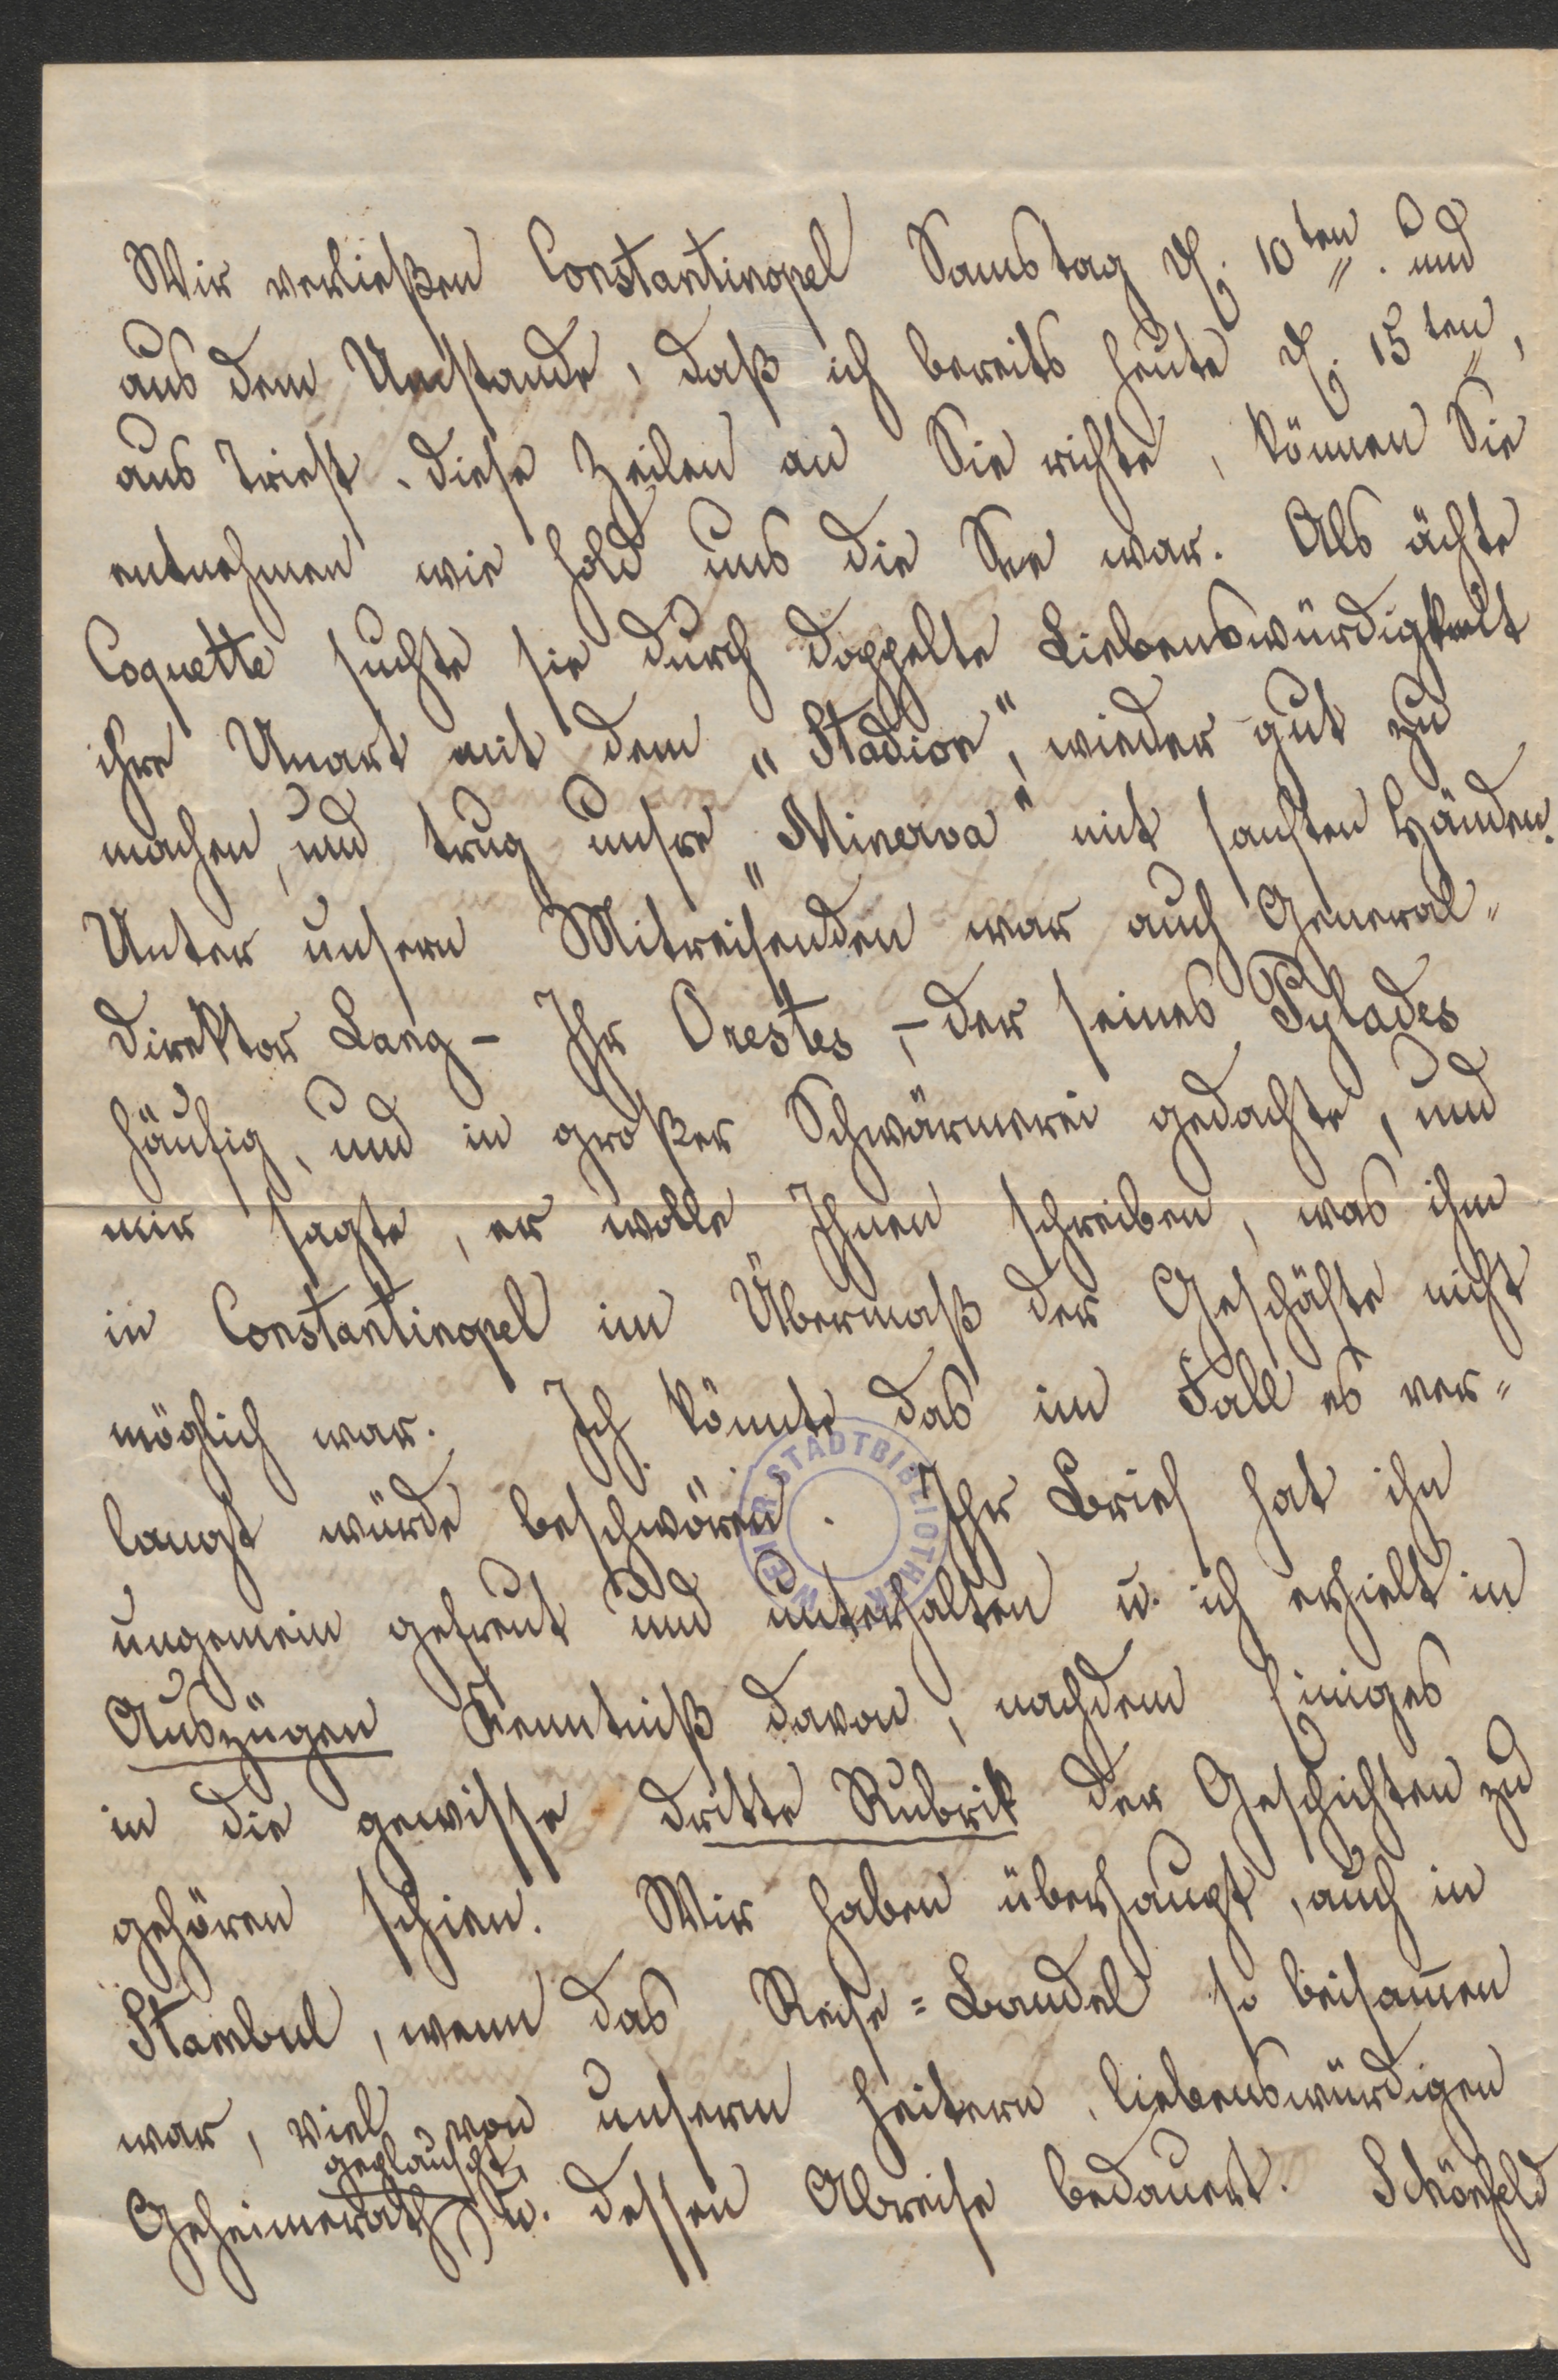 Wir verließen Constantinopel Samstag d. 10ten. und
aus dem Umstande, daß ich bereits heute d. 15ten,
aus Triest, diese Zeilen an Sie richte, können Sie
entnehmen wie hold uns die See war. Als ächte
Coquette suchte sie durch doppelte Liebenswürdigkeit
ihre Unart mit dem „Stadion“, wieder gut zu
machen, und trug unsre „Minerva“ mit sanften Händen.
Unter unsern Mitreisenden war auch General-
direktor Lang – Ihr Orestes, – der seines Pylades
häufig, und in großer Schwärmerei gedachte, und
mir sagte, er wolle Ihnen schreiben, was ihm
in Constantinopel im Übermaß der Geschäfte nicht
möglich war. Ich könnte das im Fall es ver-
langt würde beschwören. Ihr Brief hat ihn
ungemein gefreut und unterhalten u. ich erhielt in
Auszügen Kenntniß davon, nachdem Einiges
in die gewisse dritte Rubrik der Geschichten zu
gehören schien. Wir haben überhaupt, auch in
Stambul, wenn das Reise-Bandel so beisam̄en
war, viel von unserm heitern, liebenswürdigen
Geheimerath geplauscht, u. dessen Abreise bedauert. Schönfeld
WIENER STADTBIBLIOTHEK